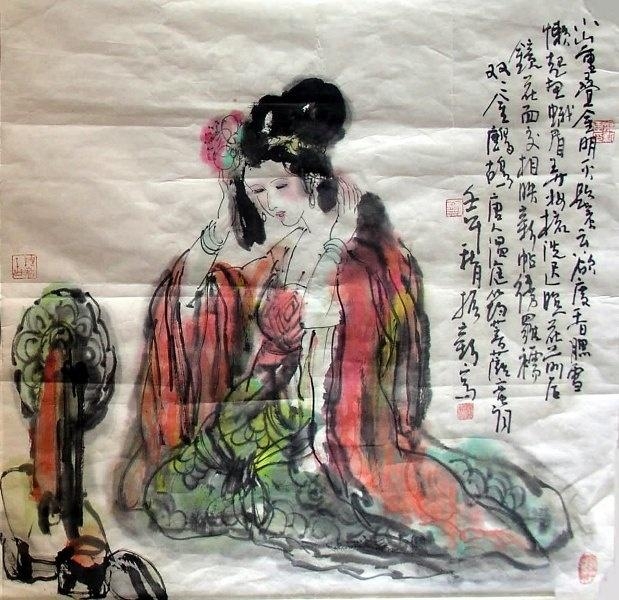 小山重疊金明灭鬓云欲度香腮雪
懒起画蛾眉弄妆梳洗迟照花前后
鏡花面交相映新帖绣羅襦
双双金鷓鴣唐人温庭筠菩薩蛮詞
壬午秋月振新写